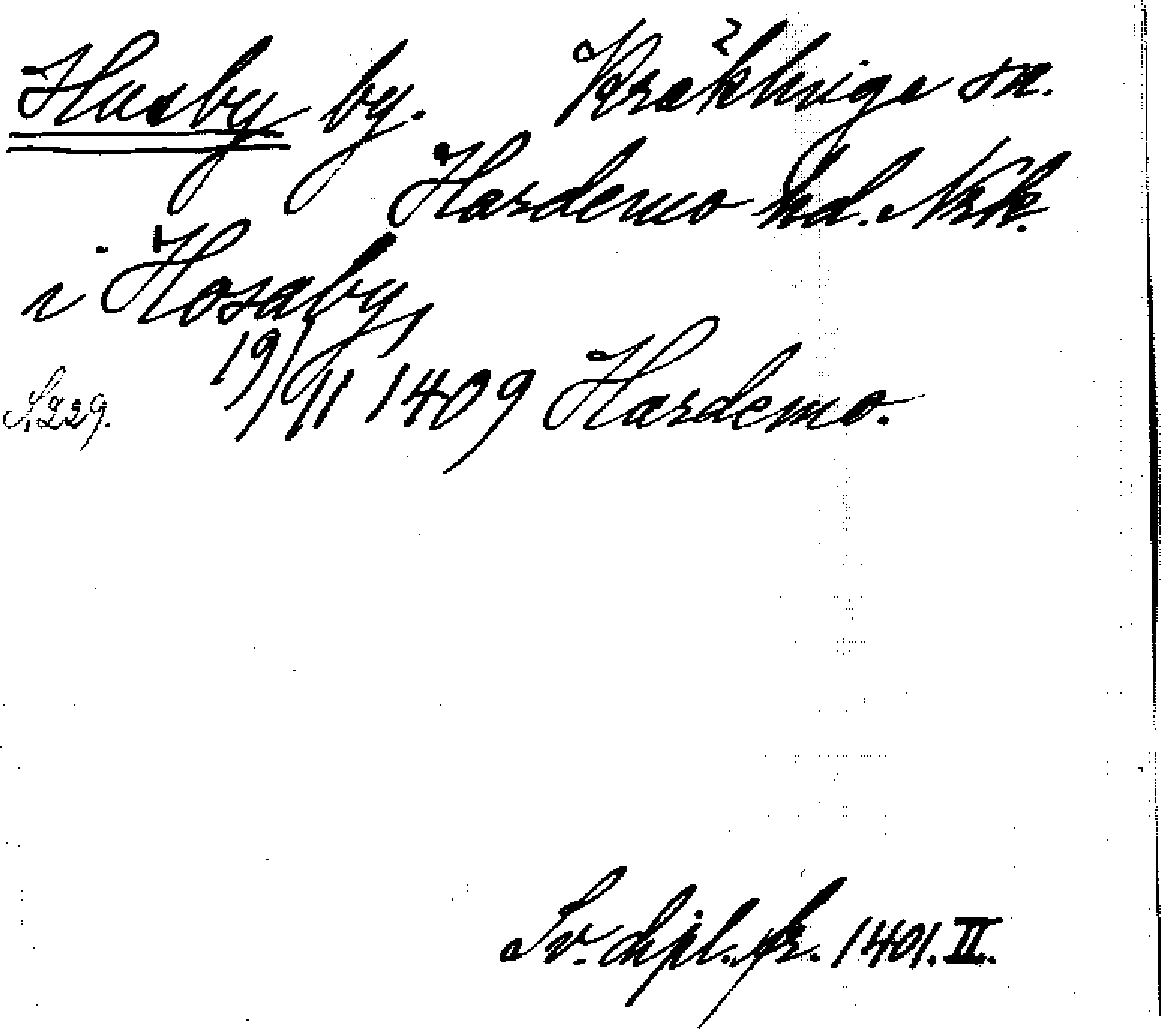 Husby by. Kräklinge sn.
Hardemo hd. Nrk.
i Hosaby,
19/11 1409 Hardemo.
S. 229.
Sv. dipl. fr. 1401. II.